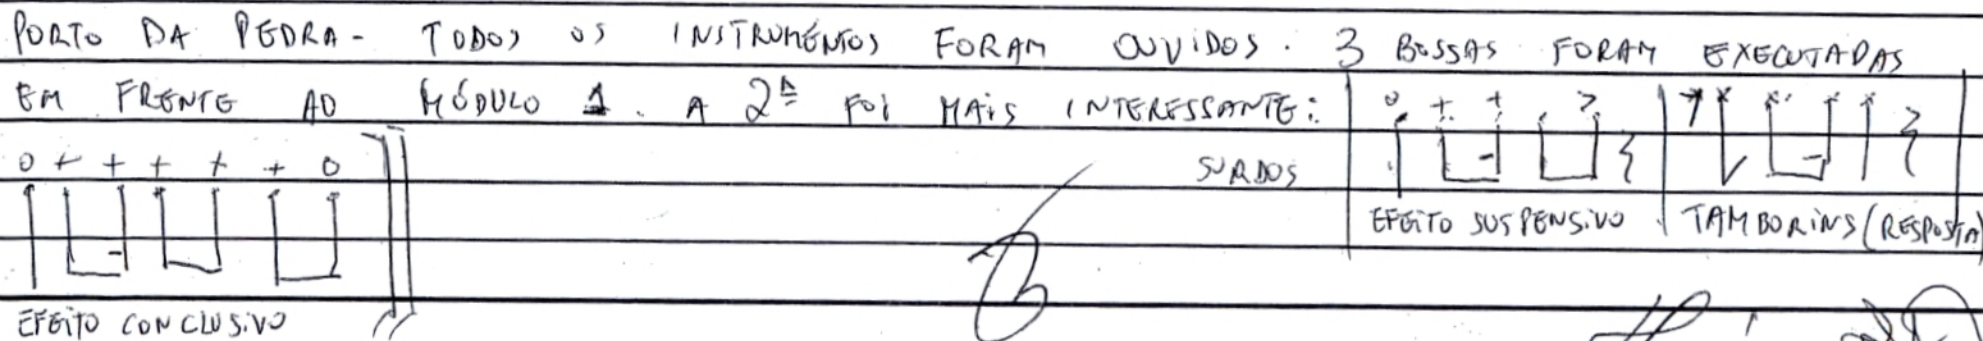 PORTO DA PEDRA - TODOS OS INSTRUMENTOS FORAM OUVIDOS. 3 BOSSAS FORAM EXECUTADAS
EM FRENTE AO MÓDULO 1. A 2ª FOI MAIS INTERESSANTE:
SURDOS
EFEITO SUSPENSIVO TAMBORINS (RESPOSTA)
EFEITO CONCLUSIVO